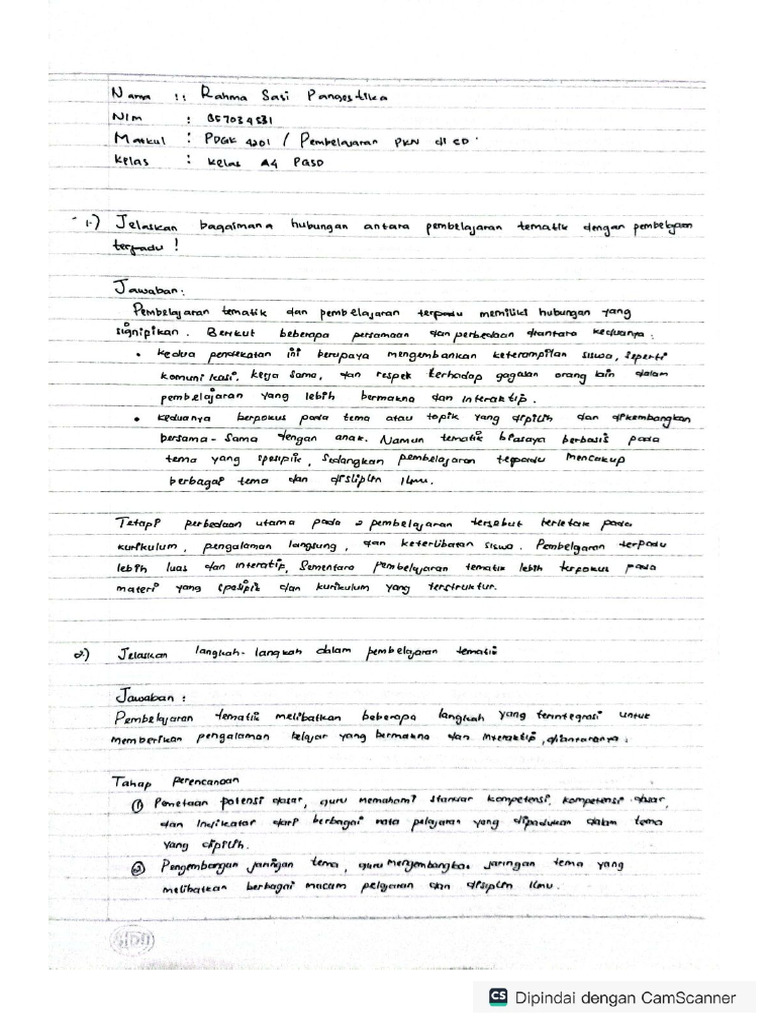 Nama : Rahma Sasi Pangestika
NIm : 857034531
Matkul : PDGK 4201 / Pembelajaran PKN di SD
Kelas : Kelas A4 PASD
1.) Jelaskan bagaimana hubungan antara pembelajaran tematik dengan pembelajaran
terpadu !
Jawaban :
Pembelajaran tematik dan pembelajaran terpadu memiliki hubungan yang
signipikan. Berikut beberapa persamaan dan perbedaan diantara keduanya :
• Kedua pendekatan ini berupaya mengembankan keterampilan siswa, seperti
komunikasi, kerja sama, dan respek terhadap gagasan orang lain dalam
pembelajaran yang lebih bermakna dan interaktip.
• Keduanya berpokus pada tema atau topik yang dipilih dan dikembangkan
bersama-sama dengan anak. Namun tematik biasaya berbasis pada
tema yang spesipik, sedangkan pembelajaran terpadu mencakup
berbagai tema dan disiplin ilmu.
Tetapi perbedaan utama pada 2 pembelajaran tersebut terletak pada
kurikulum, pengalaman langsung, dan keterlibatan siswa. Pembelajaran terpadu
lebih luas dan interatip, Sementara pembelajaran tematik lebih terpokus pada
materi yang spesipik dan kurikulum yang terstruktur.
2.) Jelaskan langkah-langkah dalam pembelajaran tematik
Jawaban :
Pembelajaran tematik melibatkan beberapa langkah yang terintegrasi untuk
memberikan pengalaman belajar yang bermakna dan interaktip, diantaranya :
Tahap perencanaan
① Pemetaan potensi dasar, guru memahami standar kompetensi, kompetensi dasar,
dan indikator dari berbagai mata pelajaran yang dipadukan dalam tema
yang dipilih.
② Pengembangan jaringan tema, guru mengembangkan jaringan tema yang
melibatkan berbagai macam pelajaran dan disiplin ilmu.
CS Dipindai dengan CamScanner